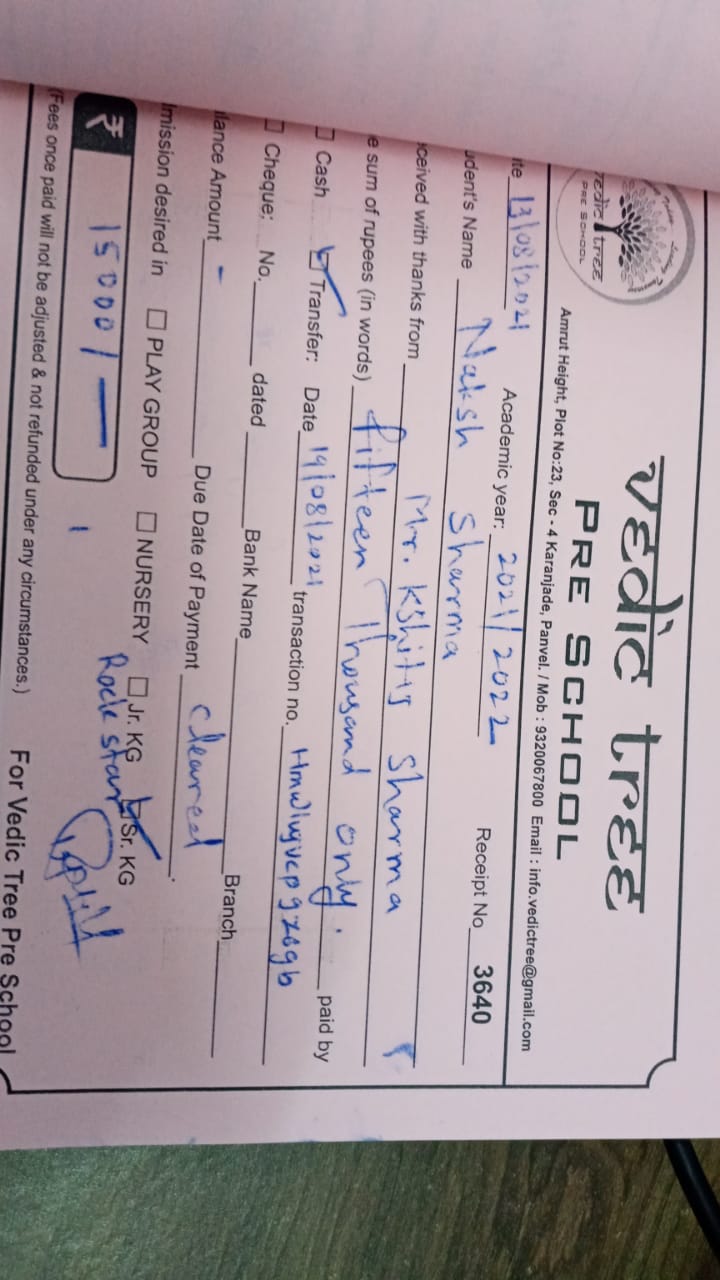 vedic tree
PRE SCHOOL
vedic tree
PRE SCHOOL
Amrut Height, Plot No:23, Sec - 4 Karanjade, Panvel. / Mob : 9320067800 Email : info.vedictree@gmail.com
ite 13/08/2021 Academic year: 2021/2022 Receipt No 3640
udent's Name Naksh Sharma
ceived with thanks from Mr. Kshitij Sharma
e sum of rupees (in words) fifteen Thousand only. paid by
Cash Transfer: Date 14/08/2021 transaction no.
Cheque: No. dated Bank Name Branch
lance Amount - Due Date of Payment cleared
mission desired in PLAY GROUP NURSERY Jr. KG Sr. KG
Rock star
₹ 15000/-
(Fees once paid will not be adjusted & not refunded under any circumstances.) For Vedic Tree Pre School